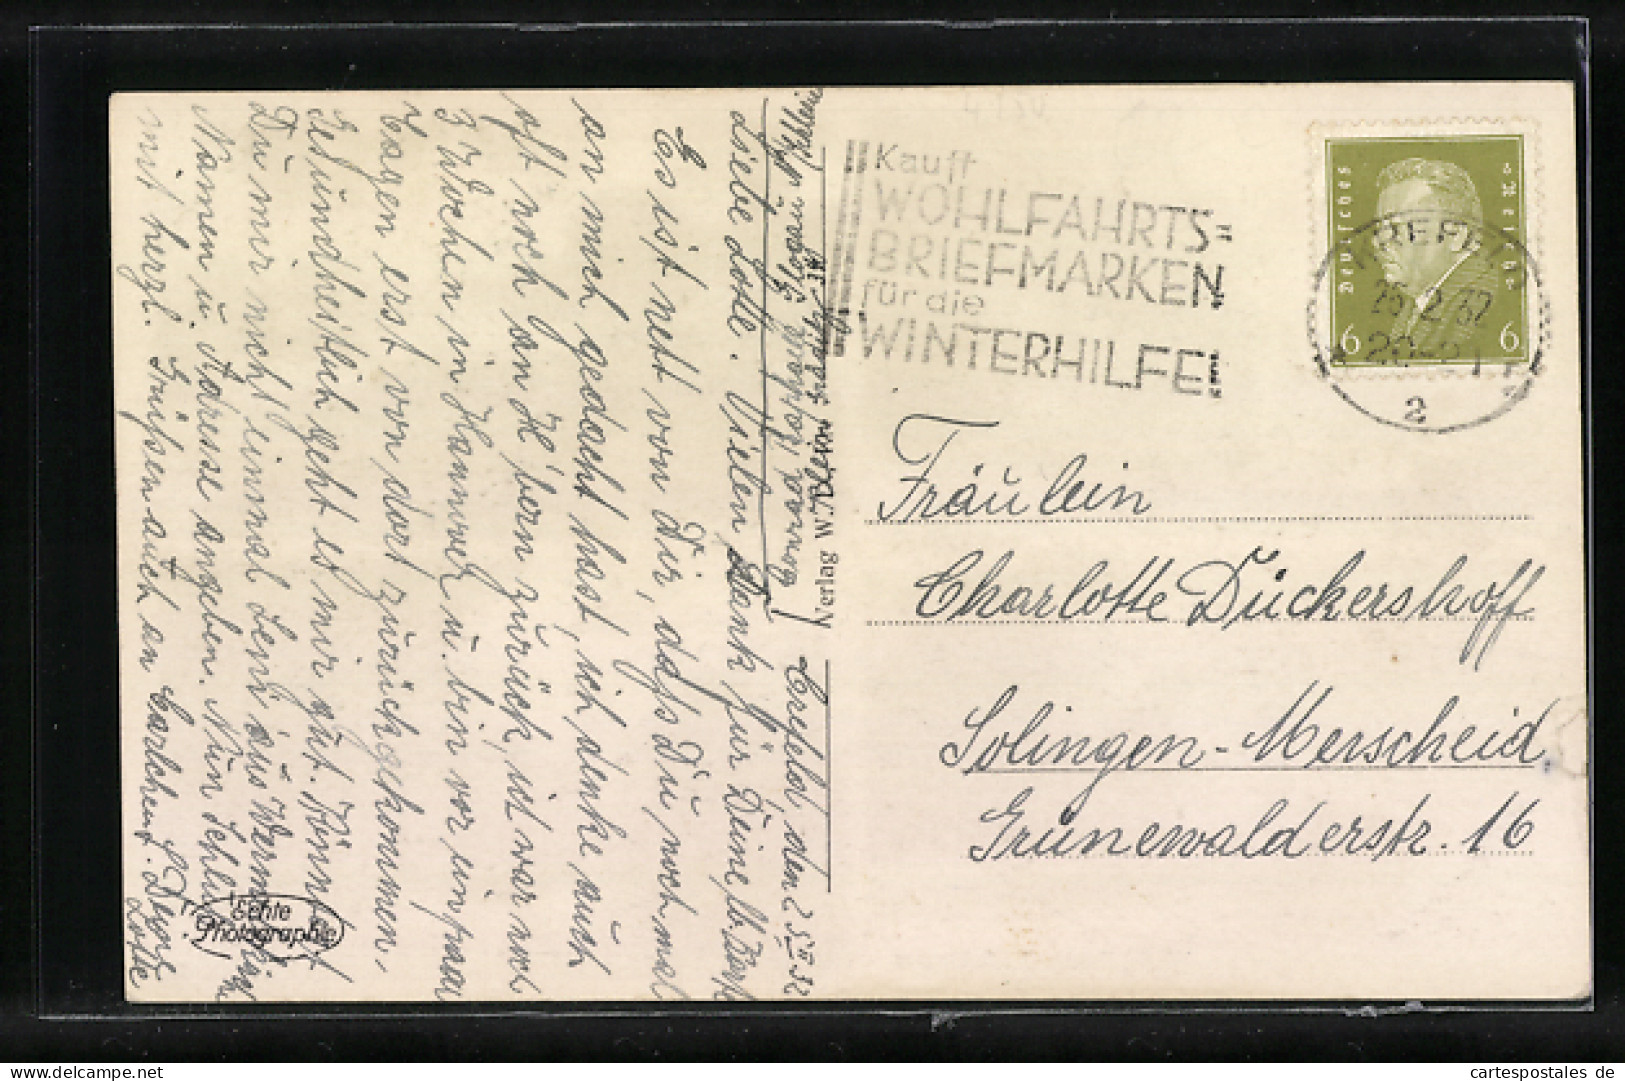 Kauft
WOHLFAHRTS=
BRIEFMARKEN
für die
WINTERHILFE!
Deutsches Reich
6 6
KREFELD
25.2.32
20-21
a
Fräulein
Charlotte Dückershoff
Solingen-Merscheid
Grünewalderstr. 16
Crefeld, den 25.II.32
Liebe Lotte. Vielen Dank für Deine lb. Karte
Es ist nett von Dir, dass Du noch mal
an mich gedacht hast, ich denke auch
oft noch an H'born zurück, ich war noch
3 Wochen in Hannover u. bin vor ein paar
Tagen erst von dort zurückgekommen,
Gesundheitlich geht es mir gut. Könntest
Du mir nicht einmal Leni aus
Namen u. Adresse angeben. Nun Schluss
mit herzl. Grüßen auch an Carlchen. Deine
Lotte
Conrad
Verlag W. Klein
Echte
Photographie
cartespostales de